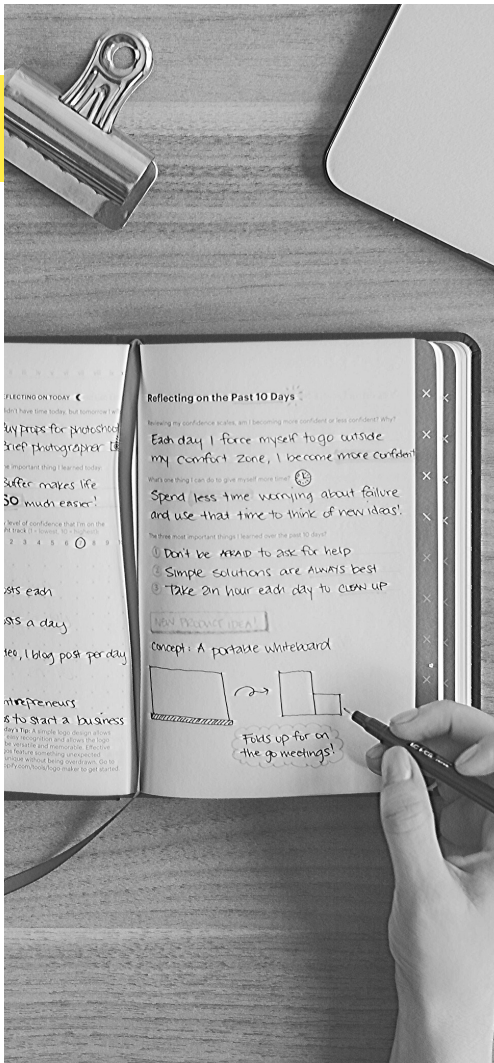 FLECTING ON TODAY
didn't have time today, but tomorrow I
uy props for photoshoot
Brief photographer
e important thing I learned today
Buffer makes life
SO much easier!
level of confidence that I'm on the
ht track (1 = lowest, 10 = highest)
2 3 4 5 6 7 8 9
sts each
sts a day
deo, 1 blog post per day
ntrepreneurs
s to start a business
day's Tip: A simple logo design allows
easy recognition and allows the logo
be versatile and memorable. Effective
os feature something unexpected
unique without being overdrawn. Go to
pify.com/tools/logo-maker to get started.
Reflecting on the Past 10 Days
Reviewing my confidence scales, am I becoming more confident or less confident? Why?
Each day I force myself to go outside
my comfort zone, I become more confident
What's one thing I can do to give myself more time?
Spend less time worrying about failure
and use that time to think of new ideas!
The three most important things I learned over the past 10 days?
1 Don't be AFRAID to ask for help
2 Simple solutions are ALWAYS best
3 Take an hour each day to CLEAN UP
NEW PRODUCT IDEA!
Concept: A portable whiteboard
Folds up for on
the go meetings!